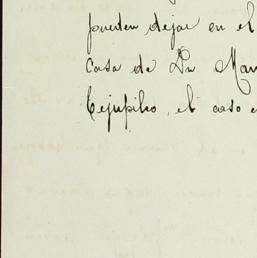 pueden dejar en el
Casa de Dn Man
Tejupilco, el caso